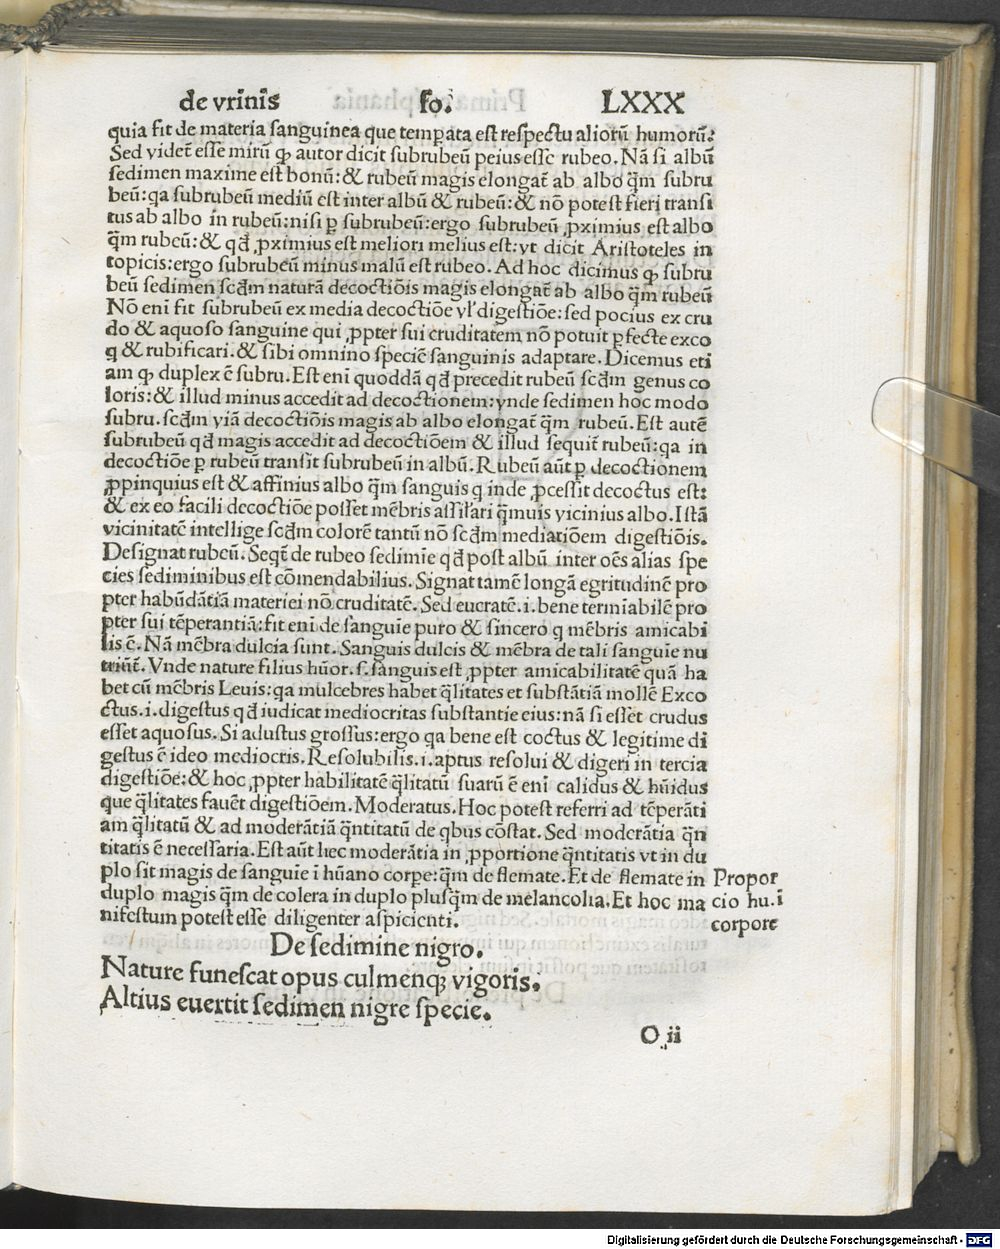 de vrinis fo. LXXX
quia fit de materia sanguinea que temꝑata est respectu aliorū humorū:
Sed videt̄ esse mirū ꝙ autor dicit subrubeū peius esse rubeo. Nā si albū
sedimen maxime est bonū: & rubeū magis elongat̄ ab albo q̄m subru
beū: qa subrubeū mediū est inter albū & rubeū: & nō potest fieri transi
tus ab albo in rubeū: nisi ꝑ subrubeū: ergo subrubeū ꝓximius est albo
q̄m rubeū: & qđ ꝓximius est meliori melius est: vt dicit Aristoteles in
topicis: ergo subrubeū minus malū est rubeo. Ad hoc dicimus ꝙ subru
beū sedimen scđm naturā decoctiōis magis elongat̄ ab albo q̄m rubeū
Nō eni fit subrubeū ex media decoctiōe vl' digestiōe: sed pocius ex cru
do & aquoso sanguine qui ꝓpter sui cruditatem nō potuit ꝑfecte exco
q & rubificari. & sibi omnino speciē sanguinis adaptare. Dicemus eti
am ꝙ duplex ē subru. Est eni quoddā qđ precedit rubeū scđm genus co
loris: & illud minus accedit ad decoctionem: vnde sedimen hoc modo
subru. scđm viā decoctiōis magis ab albo elongat̄ q̄m rubeū. Est autē
subrubeū qđ magis accedit ad decoctiōem & illud sequit̄ rubeū: qa in
decoctiōe ꝑ rubeū transit subrubeū in albū. Rubeū aūt ꝑ decoctionem
ꝓpinquius est & affinius albo q̄m sanguis q inde ꝓcessit decoctus est:
& ex eo facili decoctiōe posset mēbris assil'ari q̄muis vicinius albo. Istā
vicinitatē intellige scđm colorē tantū nō scđm mediatiōem digestiōis.
Designat rubeū. Seqt̄ de rubeo sedimīe qđ post albū inter oēs alias spe
cies sediminibus est cōmendabilius. Signat tamē longā egritudinē pro
pter habūdātiā materiei nō cruditatē. Sed eucratē .i. bene termīabilē pro
pter sui tēperantiā: fit eni de sanguīe puro & sincero q mēbris amicabi
lis ē. Nā mēbra dulcia sunt. Sanguis dulcis & mēbra de tali sanguīe nu
triūt̄. Vnde nature filius hūor. s. sanguis est ꝓpter amicabilitatē quā ha
bet cū mēbris Leuis: qa mulcebres habet q̄litates et substātiā mollē Exco
ctus .i. digestus qđ iudicat mediocritas substantie eius: nā si esset crudus
esset aquosus. Si adustus grossus: ergo qa bene est coctus & legitime di
gestus ē ideo mediocris. Resolubilis .i. aptus resolui & digeri in tercia
digestiōe: & hoc ꝓpter habilitatē q̄litatū suarū ē eni calidus & hūidus
que q̄litates fauēt digestiōem. Moderatus. Hoc potest referri ad tēperāti
am q̄litatū & ad moderātiā q̄ntitatū de qbus cōstat. Sed moderātia q̄n
titatis ē necessaria. Est aūt hec moderātia in ꝓportione q̄ntitatis vt in du
plo sit magis de sanguīe i hūano corpe: q̄m de flemate. Et de flemate in
duplo magis q̄m de colera in duplo plusq̄m de melancolia. Et hoc ma
nifestum potest esse diligenter aspicienti.
Propor
cio hu. ī
corpore
De sedimine nigro.
Nature funescat opus culmenqꝫ vigoris.
Altius euertit sedimen nigre specie.
O ii
Digitalisierung gefördert durch die Deutsche Forschungsgemeinschaft - DFG